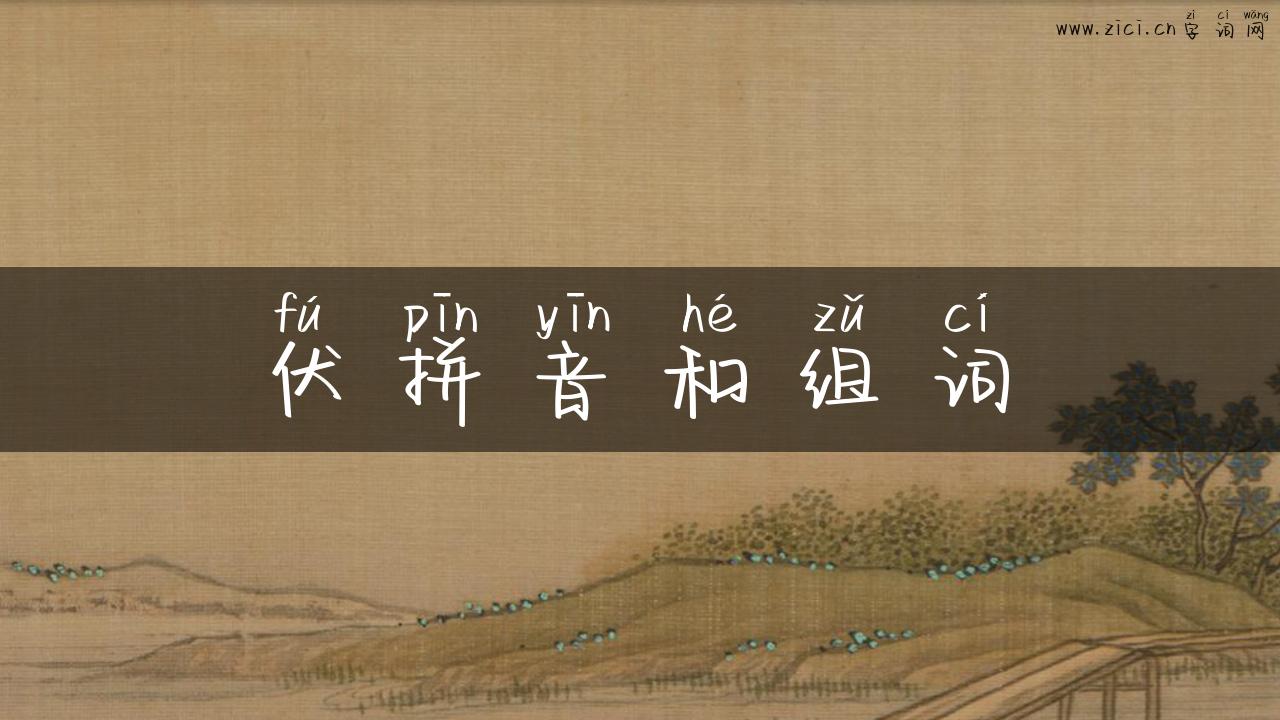 zì cí wǎng
www.zici.cn 字词网
fú pīn yīn hé zǔ cí
伏拼音和组词